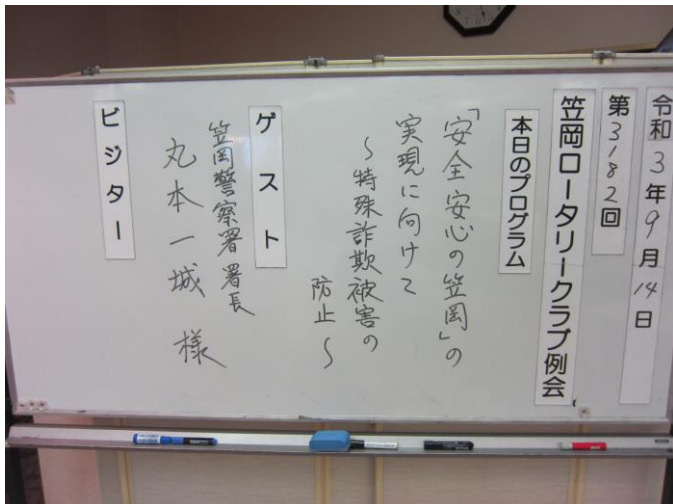 令和3年9月14日
第3182回
笠岡ロータリークラブ例会
本日のプログラム
「安全安心の笠岡」の
実現に向けて
～特殊詐欺被害の
防止～
ゲスト
笠岡警察署署長
丸本一城 様
ビジター